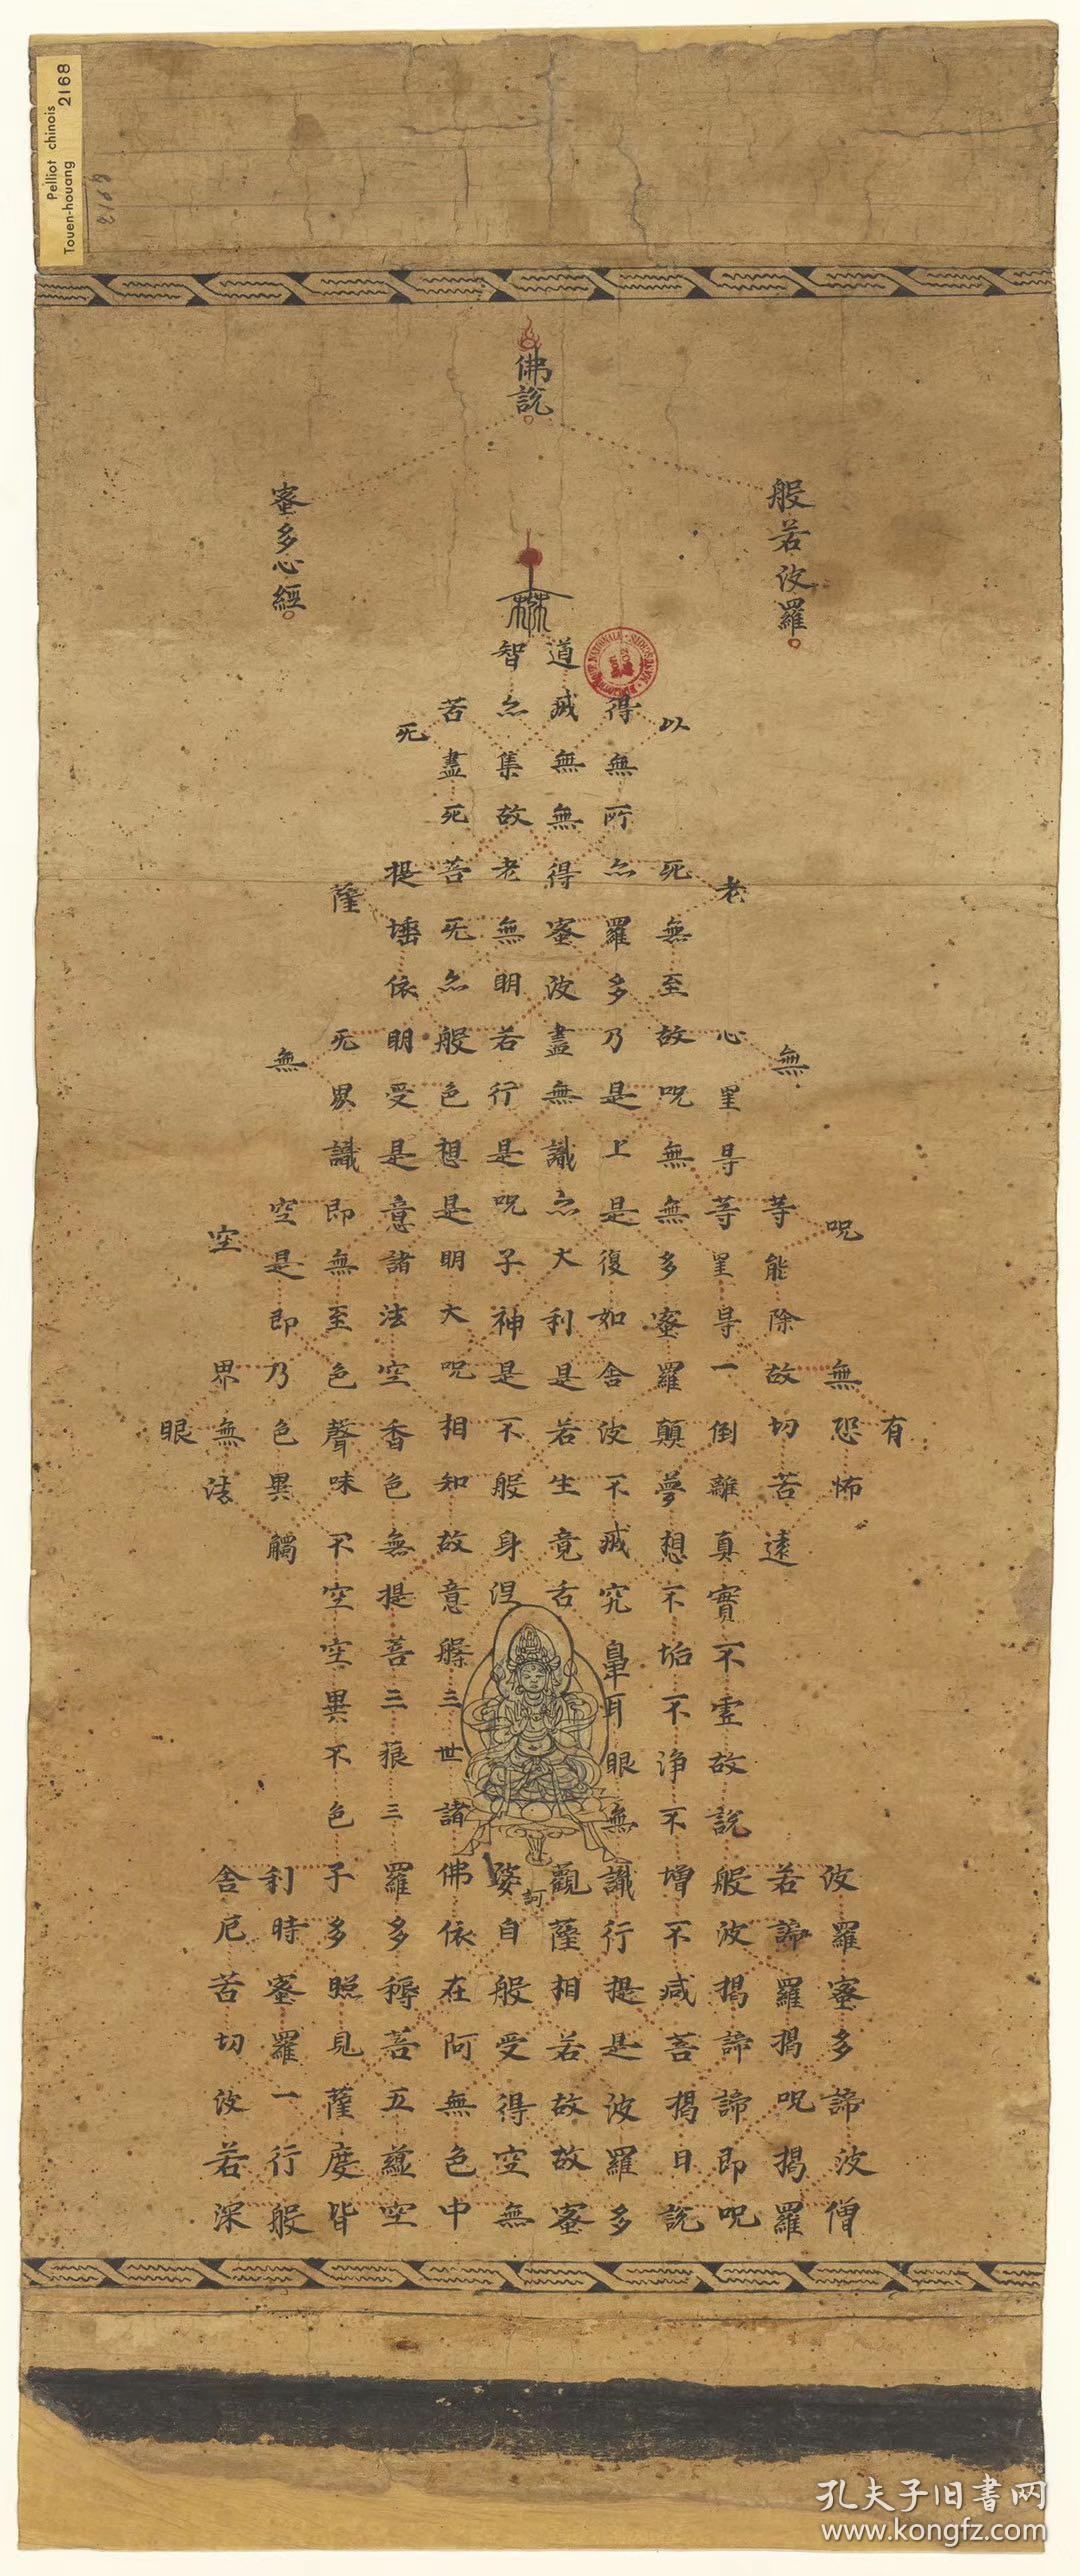 Pelliot chinois
Touen-houang 2168
2168
佛說
般若波羅
蜜多心經
有
呪無恐怖波羅蜜多諦波僧
無等能除故切苦遠若諦羅揭呪揭羅
老心罣㝵等罣㝵一倒離真實不虛故說般波揭諦諦即呪
以死無至故呪無無多蜜羅顛夢想不垢不淨不增不減菩揭曰說
得無所亦羅多乃是上是復如舍波不滅究鼻耳眼無識行提是波羅多
道滅無無得蜜波盡無識亦大利是若生竟舌觀薩相若故故蜜
訶
智亦集故老無明若行是呪子神是不般身涅婆自般受得空無
苦盡死菩无亦般色想是明大呪相知故意槃三世諸佛依在阿無色中
死提埵依明受是意諸法空香色無提菩三藐三羅多耨菩五蘊空
薩无界識即無至色聲味不空空異不色子多照見薩度皆
無空是即乃色異觸利時蜜羅一行般
空界無法舍厄苦切波若深
眼
孔夫子旧书网
www.kongfz.com